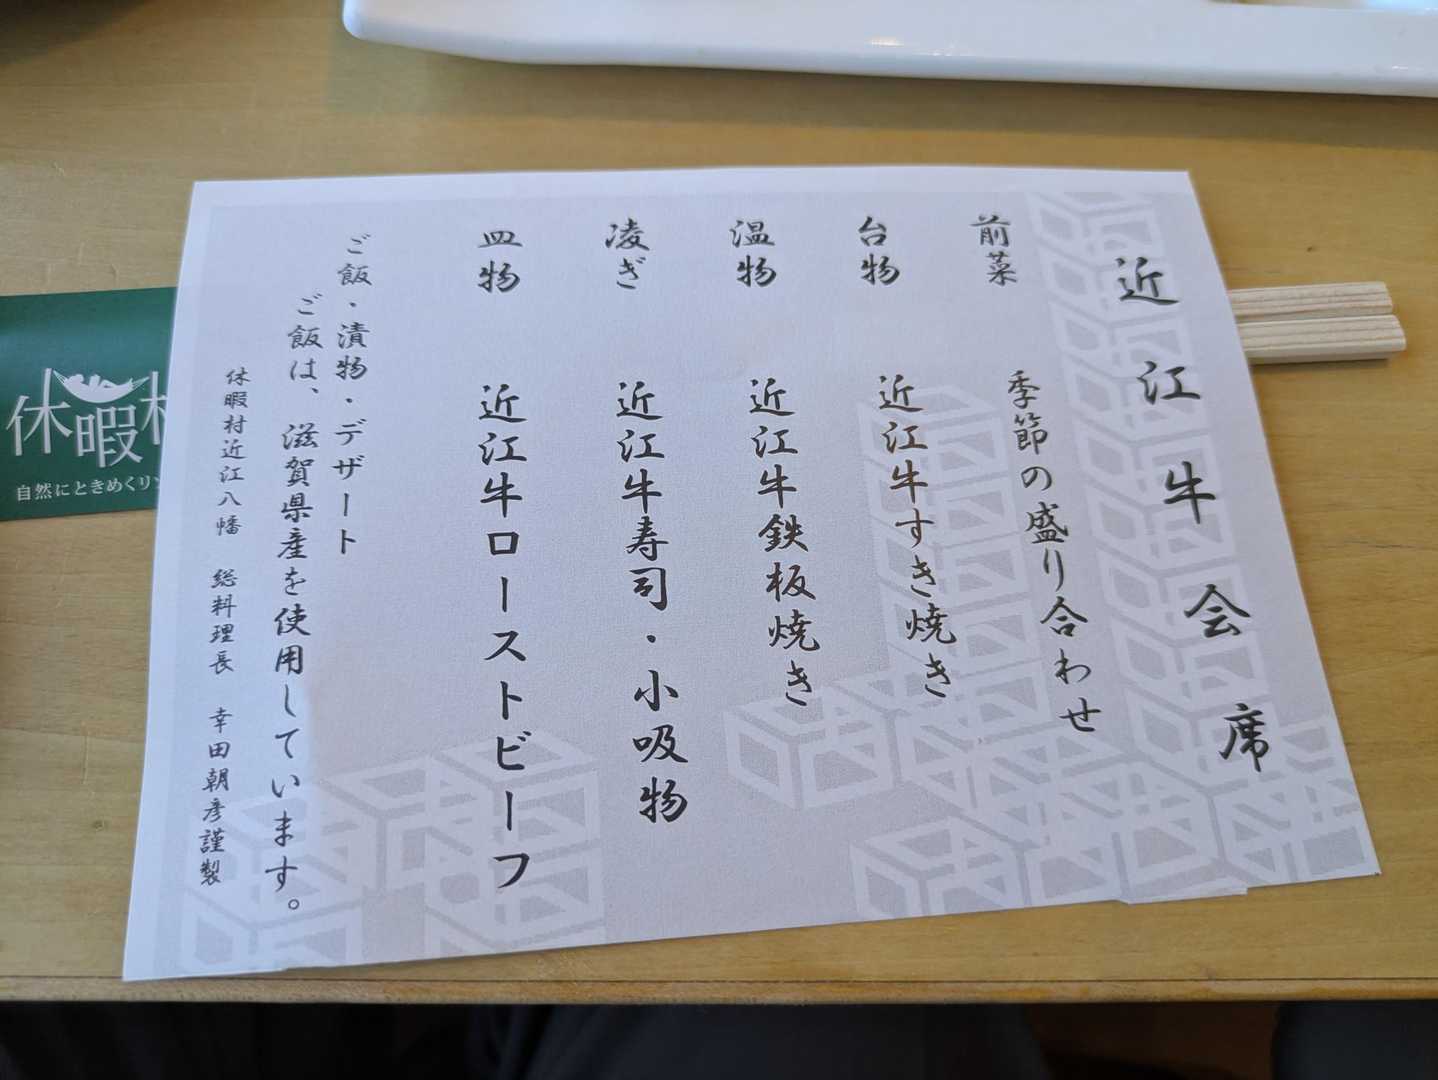 近江牛会席
前菜 季節の盛り合わせ
台物 近江牛すき焼き
温物 近江牛鉄板焼き
凌ぎ 近江牛寿司・小吸物
皿物 近江牛ローストビーフ
ご飯・漬物・デザート
ご飯は、滋賀県産を使用しています。
休暇村近江八幡 総料理長 幸田朝彦謹製
休暇村
自然にときめくリ